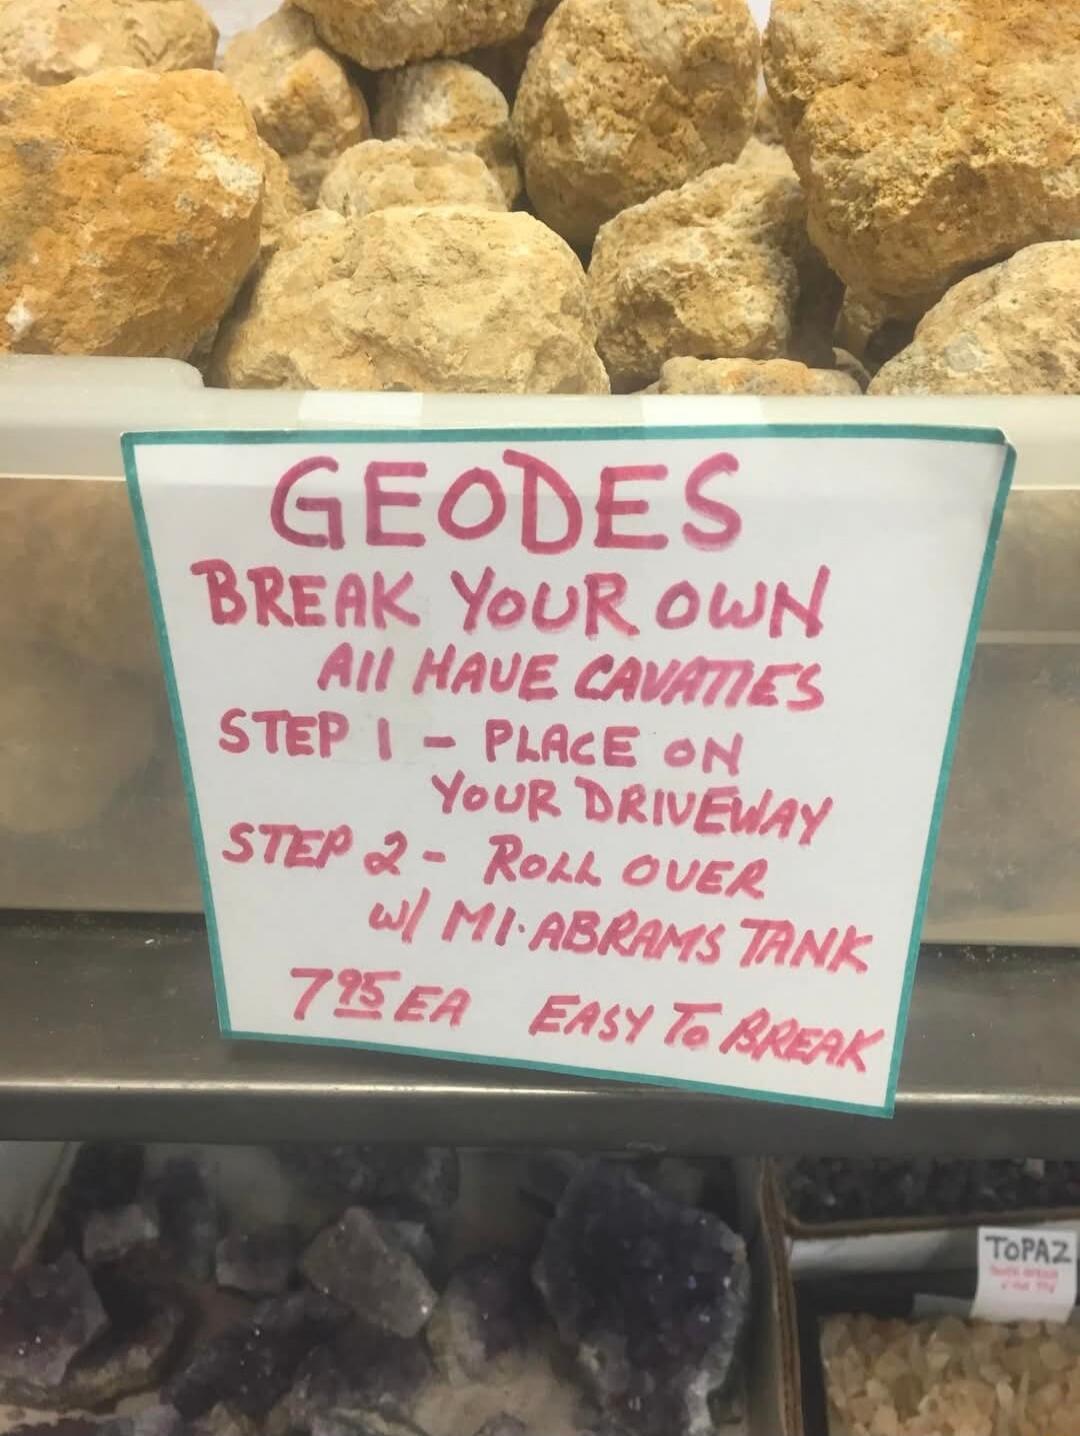 GEODES
BREAK YOUR OWN
All HAVE CAVATIES
STEP 1 - PLACE ON
YOUR DRIVEWAY
STEP 2 - ROLL OVER
W/ M1·ABRAMS TANK
7 95 EA EASY TO BREAK
TOPAZ